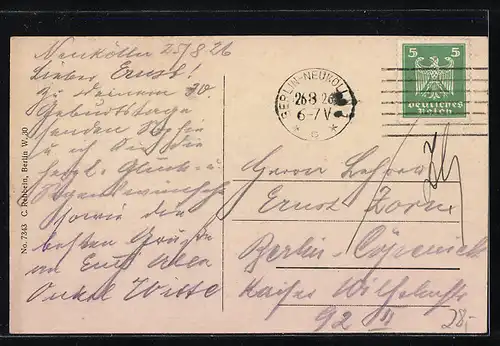 Neukölln 25/8 26
Lieber Ernst!
Zu Deinem 30.
Geburtstage
senden Sophie
u ich Dir die
herzl. Glück- u
Segenswünsche
sowie die
besten Grüße
an Euch Alle
Onkel
No. 7343 C. Rehbein, Berlin W. 30
BERLIN-NEUKÖLLN
26.8.26
6-7V
5 5
Deutsches
Reich
Herrn Lehrer
Ernst Zorn
Berlin-Cöpenick
Kaiser Wilhelmstr
92 II
28,-